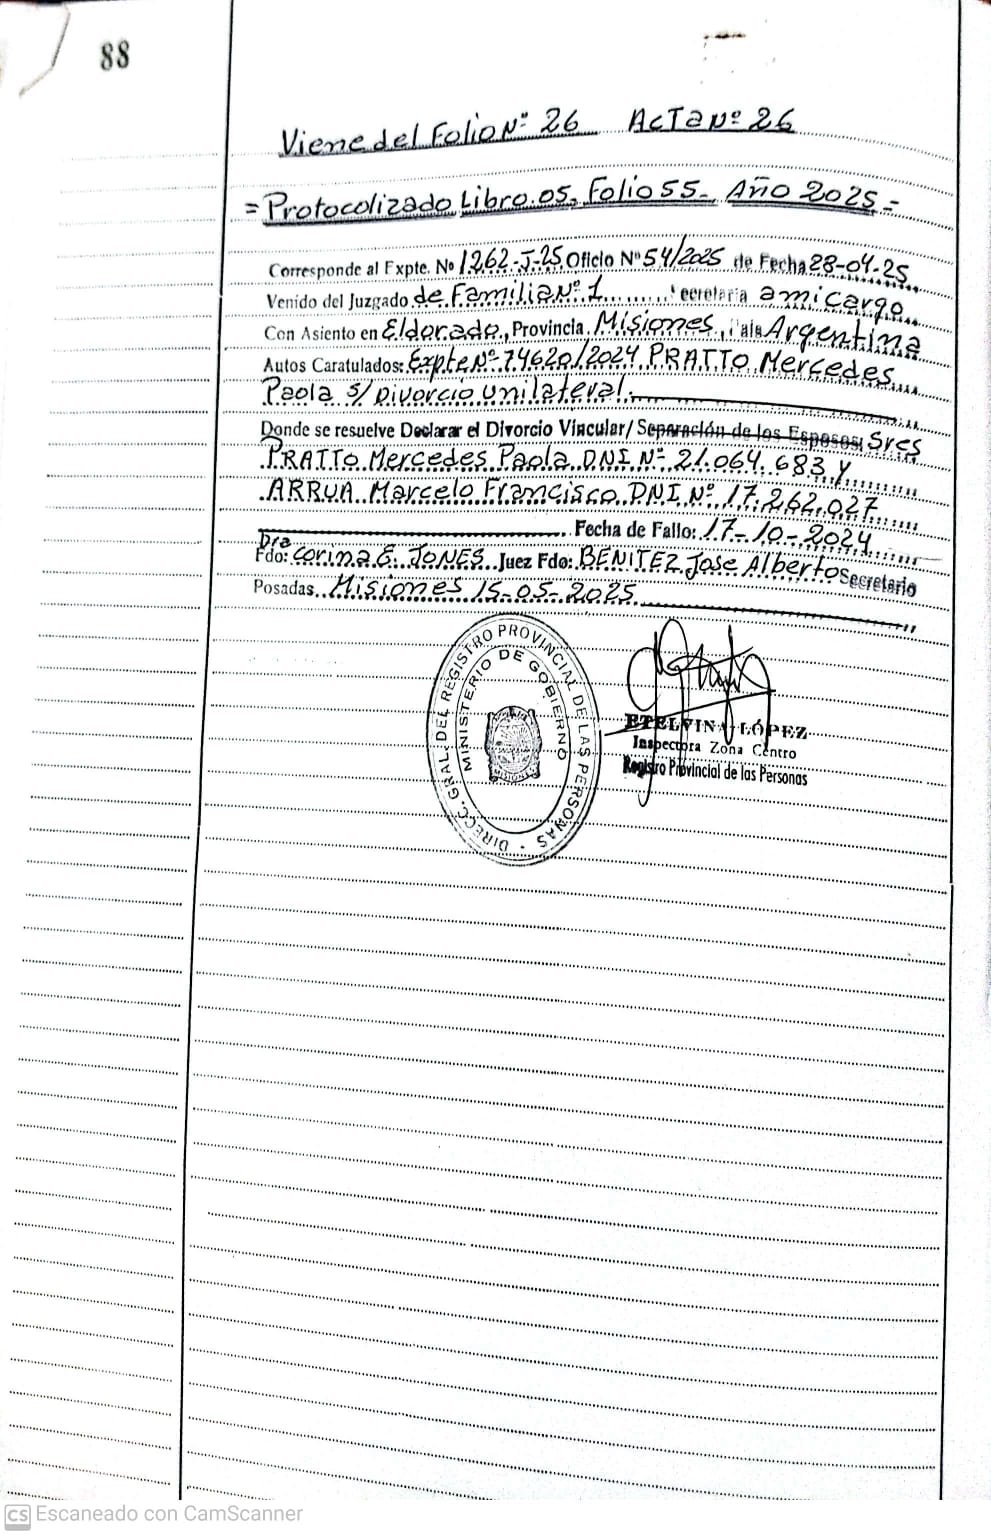 88
Viene del Folio Nº 26 Acta Nº 26
= Protocolizado Libro.05. Folio 55- Año 2025.=
Corresponde al Expte. No 1262-J-25 Oficio Nº 54/2025 de Fecha 28-04-25.
Venido del Juzgado de Familia Nº 1 ecretaria a mi cargo
Con Asiento en Eldorado, Provincia Misiones, País Argentina
Autos Caratulados: Expte Nº 74620/2024 PRATTO Mercedes
Paola s/ Divorcio unilateral.
Donde se resuelve Declarar el Divorcio Vincular/ Separación de los Esposos: Sres
PRATTO Mercedes Paola DNI Nº 21.064.683 y
ARRUA Marcelo Francisco DNI Nº 17.262.027
Fecha de Fallo: 17-10-2024
Dra
Fdo: Corina E. JONES Juez Fdo: BENITEZ Jose Alberto Secretario
Posadas, Misiones 15-05-2025.
DIRECC. GRAL. DEL REGISTRO PROVINCIAL DE LAS PERSONAS -
MINISTERIO DE GOBIERNO
MISIONES
ETELVINA LÓPEZ
Inspectora Zona Centro
Registro Provincial de las Personas
CS Escaneado con CamScanner